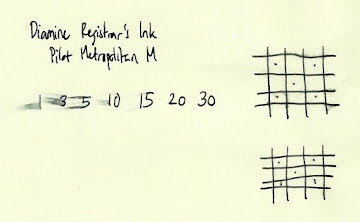 Diamine Registrar's Ink
Pilot Metropolitan M
1 3 5 10 15 20 30